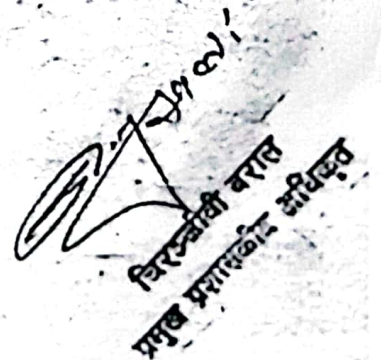 चिरञ्जीवी बराल
प्रमुख प्रशासकीय अधिकृत